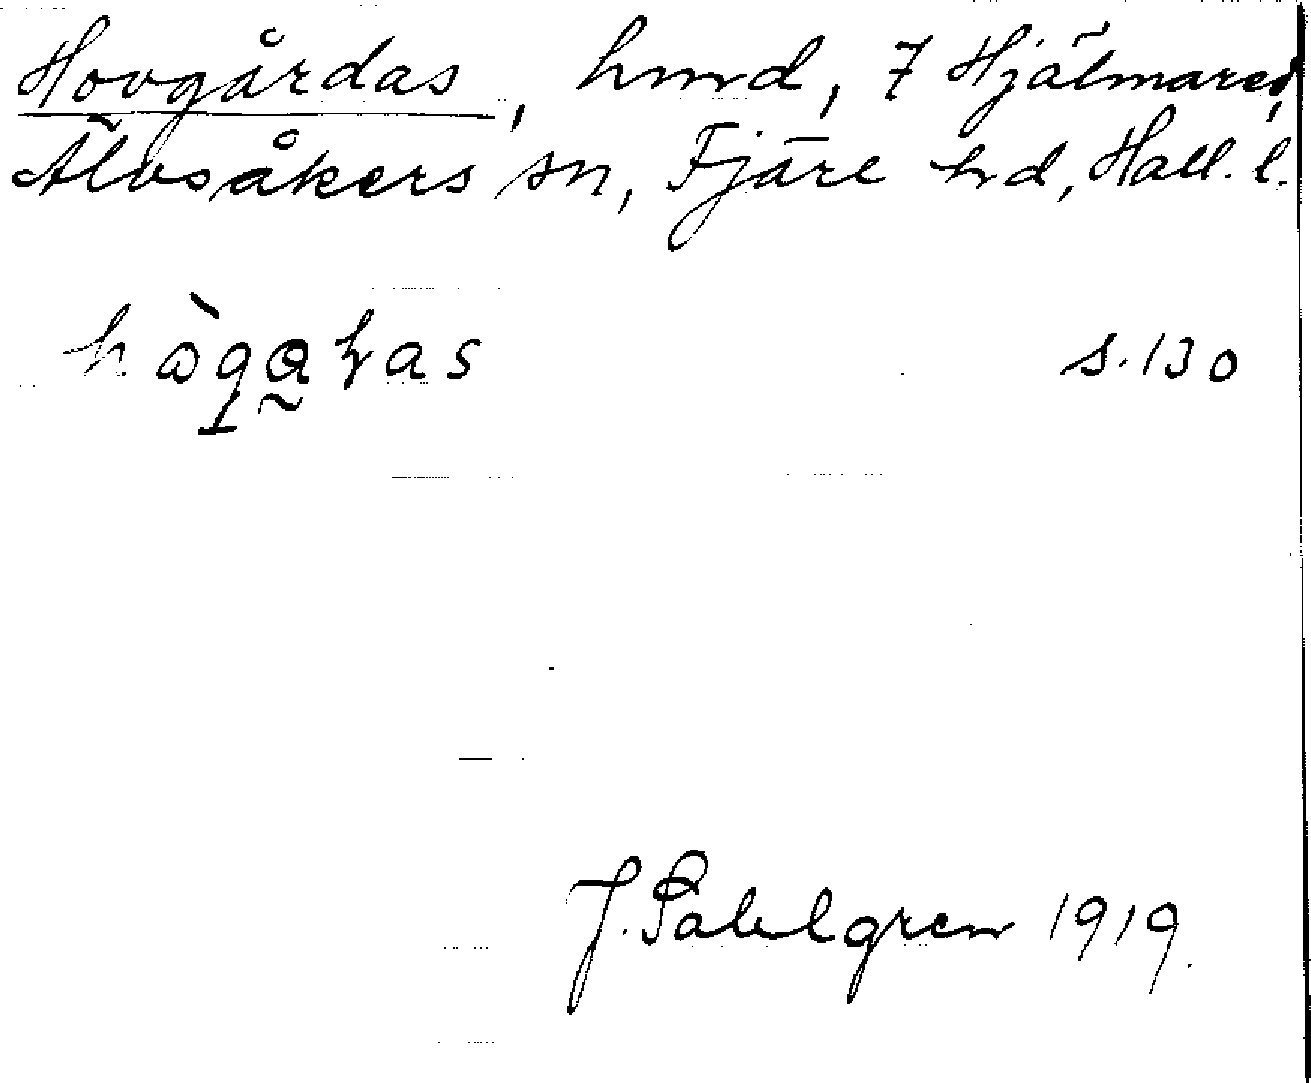 Hovgårdas, hmd, 7 Hjälmared,
Älvsåkers sn, Fjäre hd, Hall. l.
s. 130
J. Sahlgren 1919.